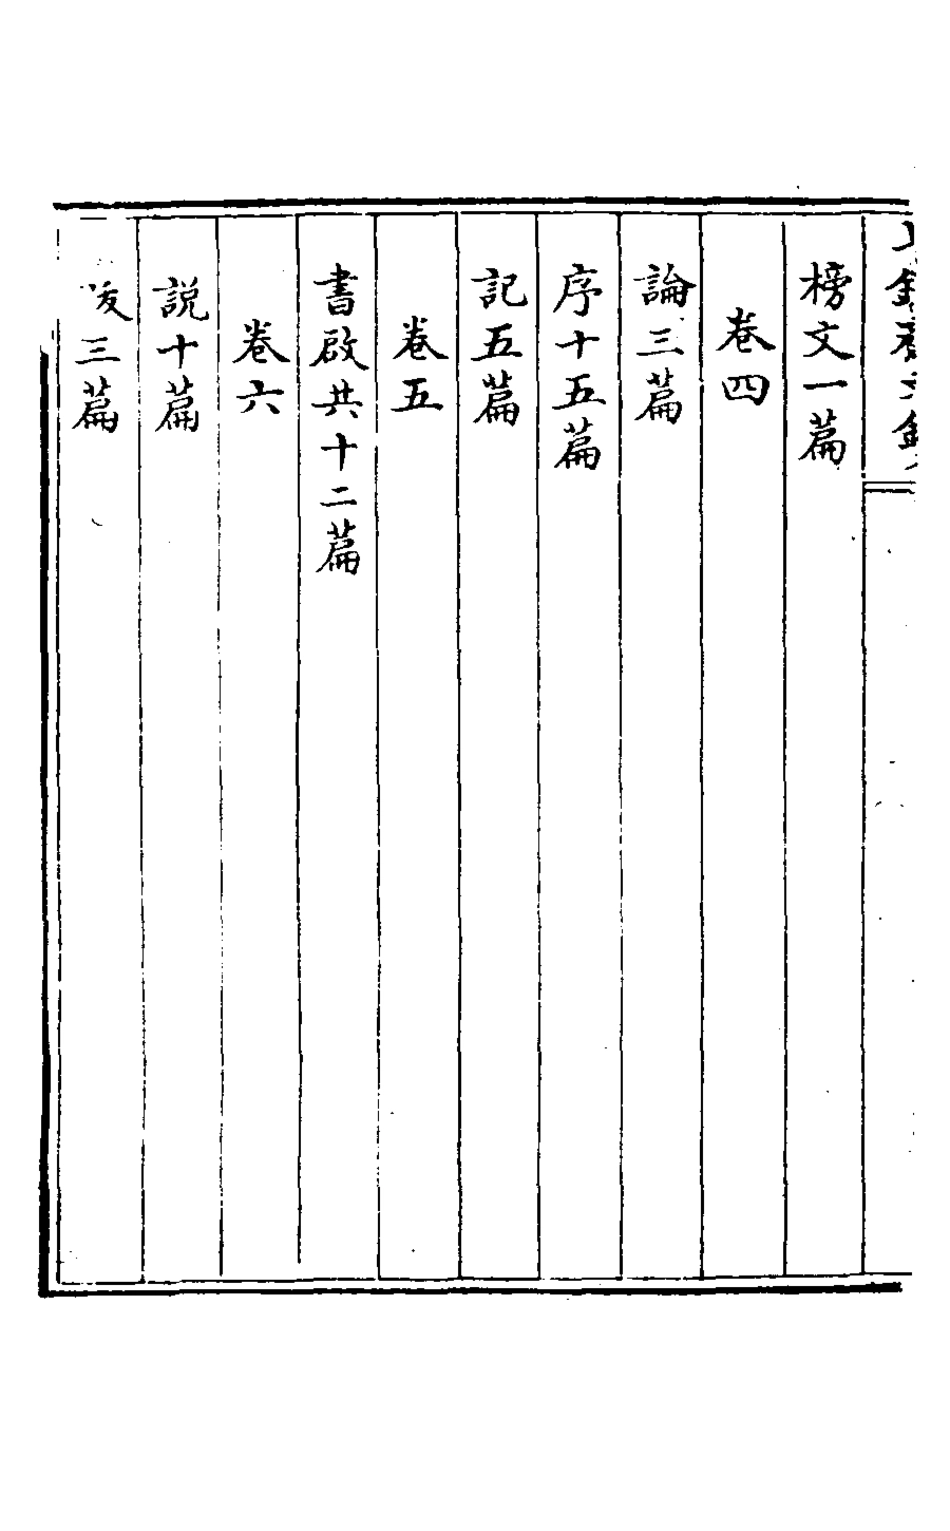 榜文一篇
卷四
論三篇
序十五篇
記五篇
卷五
書啟共十二篇
卷六
説十篇
三篇